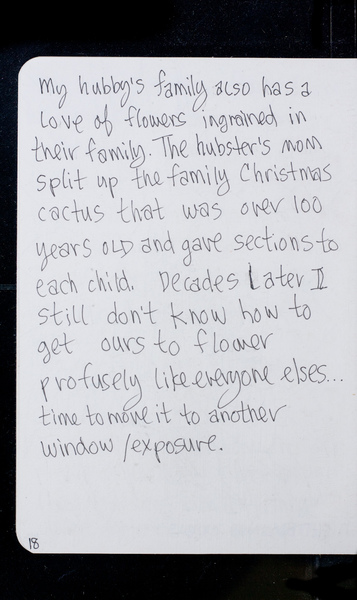 My hubby's family also has a
love of flowers ingrained in
their family. The hubster's mom
split up the family Christmas
cactus that was over 100
years old and gave sections to
each child. Decades later I
still don't know how to
get ours to flower
profusely like everyone elses...
time to move it to another
window/exposure.
18